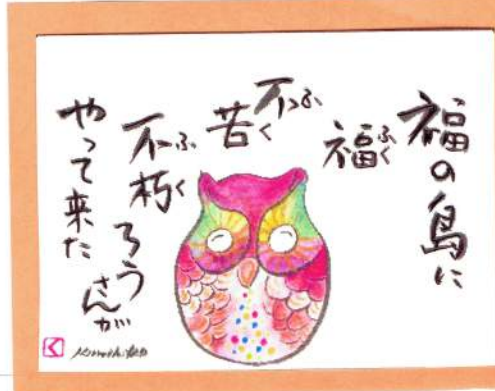 福の島に
福ふく
不ふ苦く
不ふ朽く
ろうさんが
やって来た
く